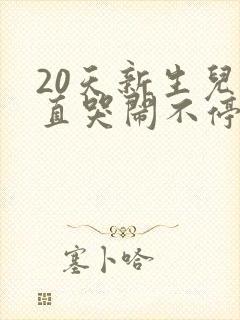 20天新生兒
直哭鬧不停
塞卜哈